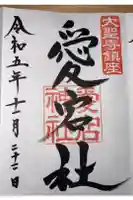 大聖寺鎮座
愛宕社
愛宕
神社
令和五年十一月二十二日